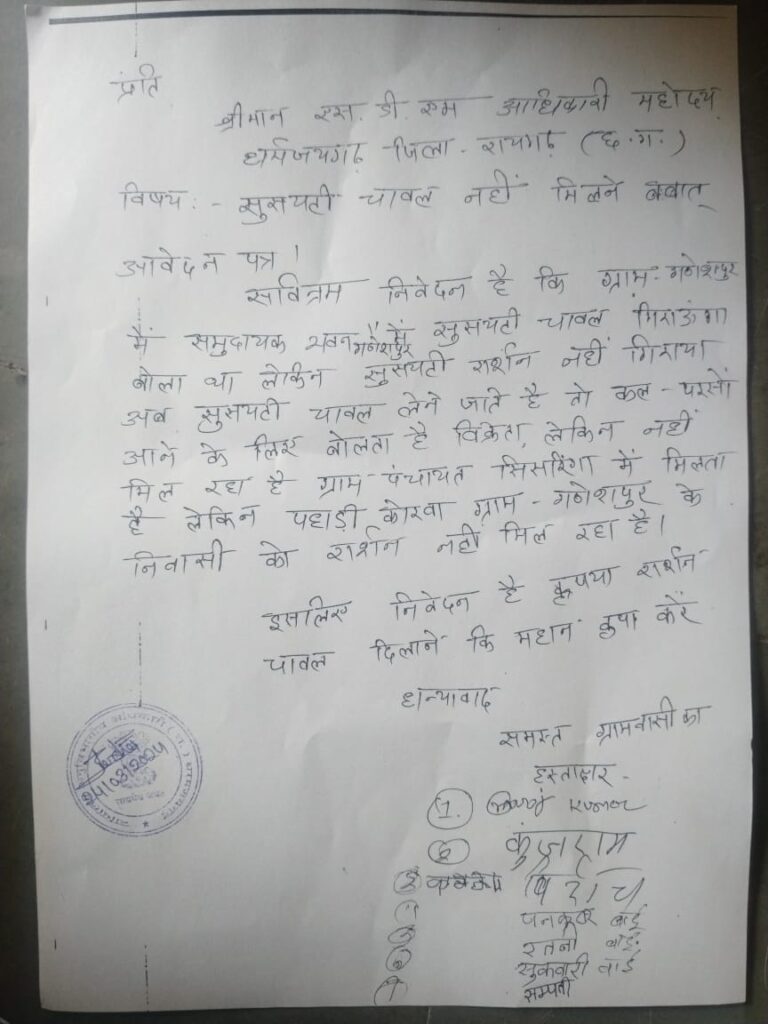 प्रति
श्रीमान एस. डी. एम आधिकारी महोदय
धर्मजयगढ़ जिला - रायगढ़ (छ. ग.)
विषय : - सुसयटी चावल नहीं मिलने बबात्
आवेदन पत्र ।
सविन्रम निवेदन है कि ग्राम - गणेशपुर
मैं समुदायक भवन गणेशपुर में सुसयटी चावल गिराऊंगा
बोला था लेकिन सुसयटी रार्शन नहीं गिराया
अब सुसयटी चावल लेने जाते है तो कल - परसों
आने के लिए बोलता है विक्रेता, लेकिन नहीं
मिल रहा है ग्राम पंचायत सिसरिंगा में मिलता
है लेकिन पहाड़ी कोरवा ग्राम - गणेशपुर के
निवासी को रार्शन नहीं मिल रहा है।
इसलिए निवेदन है कृपया रार्शन
चावल दिलाने कि महान कृपा करें
धन्यवाद
समस्त ग्रामवासी का
हस्ताक्षर -
1. Kumar
कुंजराम
बाई
रतनी बाई
सुकवारी बाई
सम्पती